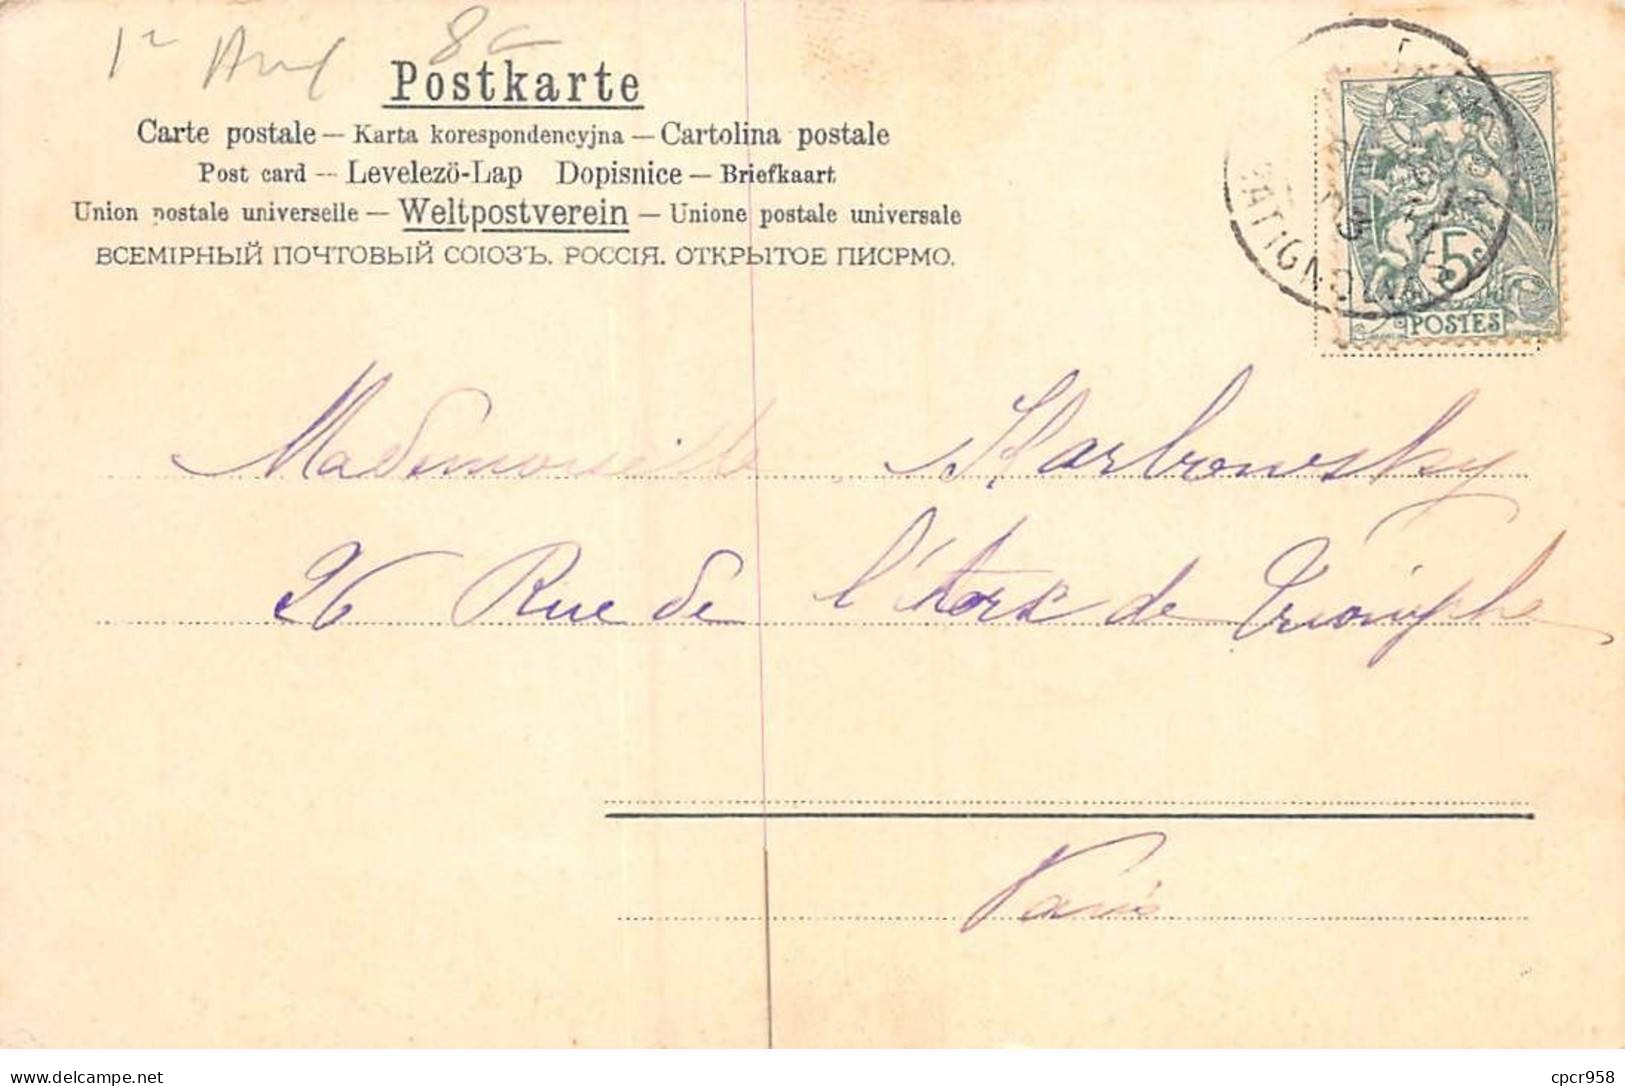 1r Avril 8c
Postkarte
Carte postale — Karta korespondencyjna — Cartolina postale
Post card -- Levelezö-Lap Dopisnice — Briefkaart
Union postale universelle — Weltpostverein — Unione postale universale
ВСЕМIРНЫЙ ПОЧТОВЫЙ СОЮЗЪ. РОССIЯ. ОТКРЫТОЕ ПИСРМО.
BATIGNOLLES
5c
POSTES
Mademoiselle Skarbrowsky
26 Rue de l'Arc de Triomphe
Paris
delcampe.net
cpcr958